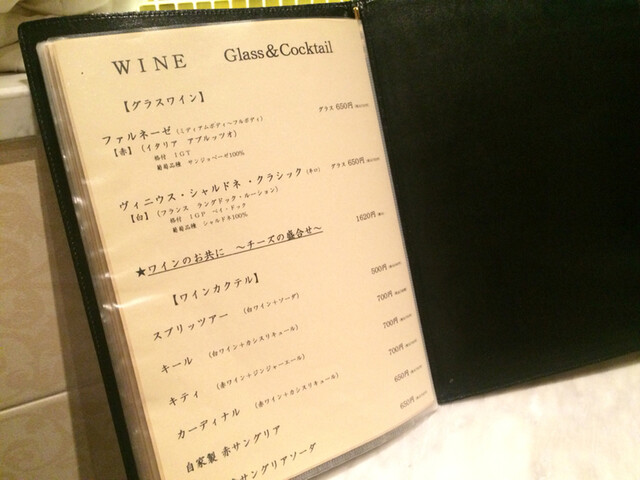 WINE Glass&Cocktail
【グラスワイン】
ファルネーゼ (ミディアムボディ～フルボディ) グラス 650円
【赤】 (イタリア アブルッツオ)
格付 IGT
葡萄品種 サンジョベーゼ100%
ヴィニウス・シャルドネ・クラシック (辛口) グラス 650円
【白】 (フランス ラングドック・ルーション)
格付 IGP ペイ・ドック
葡萄品種 シャルドネ100%
★ワインのお共に ～チーズの盛合せ～ 1620円
【ワインカクテル】
スプリッツアー (白ワイン+ソーダ) 500円
キール (白ワイン+カシスリキュール) 700円
キティ (赤ワイン+ジンジャーエール) 700円
カーディナル (赤ワイン+カシスリキュール) 700円
自家製 赤サングリア 650円
赤サングリアソーダ 650円